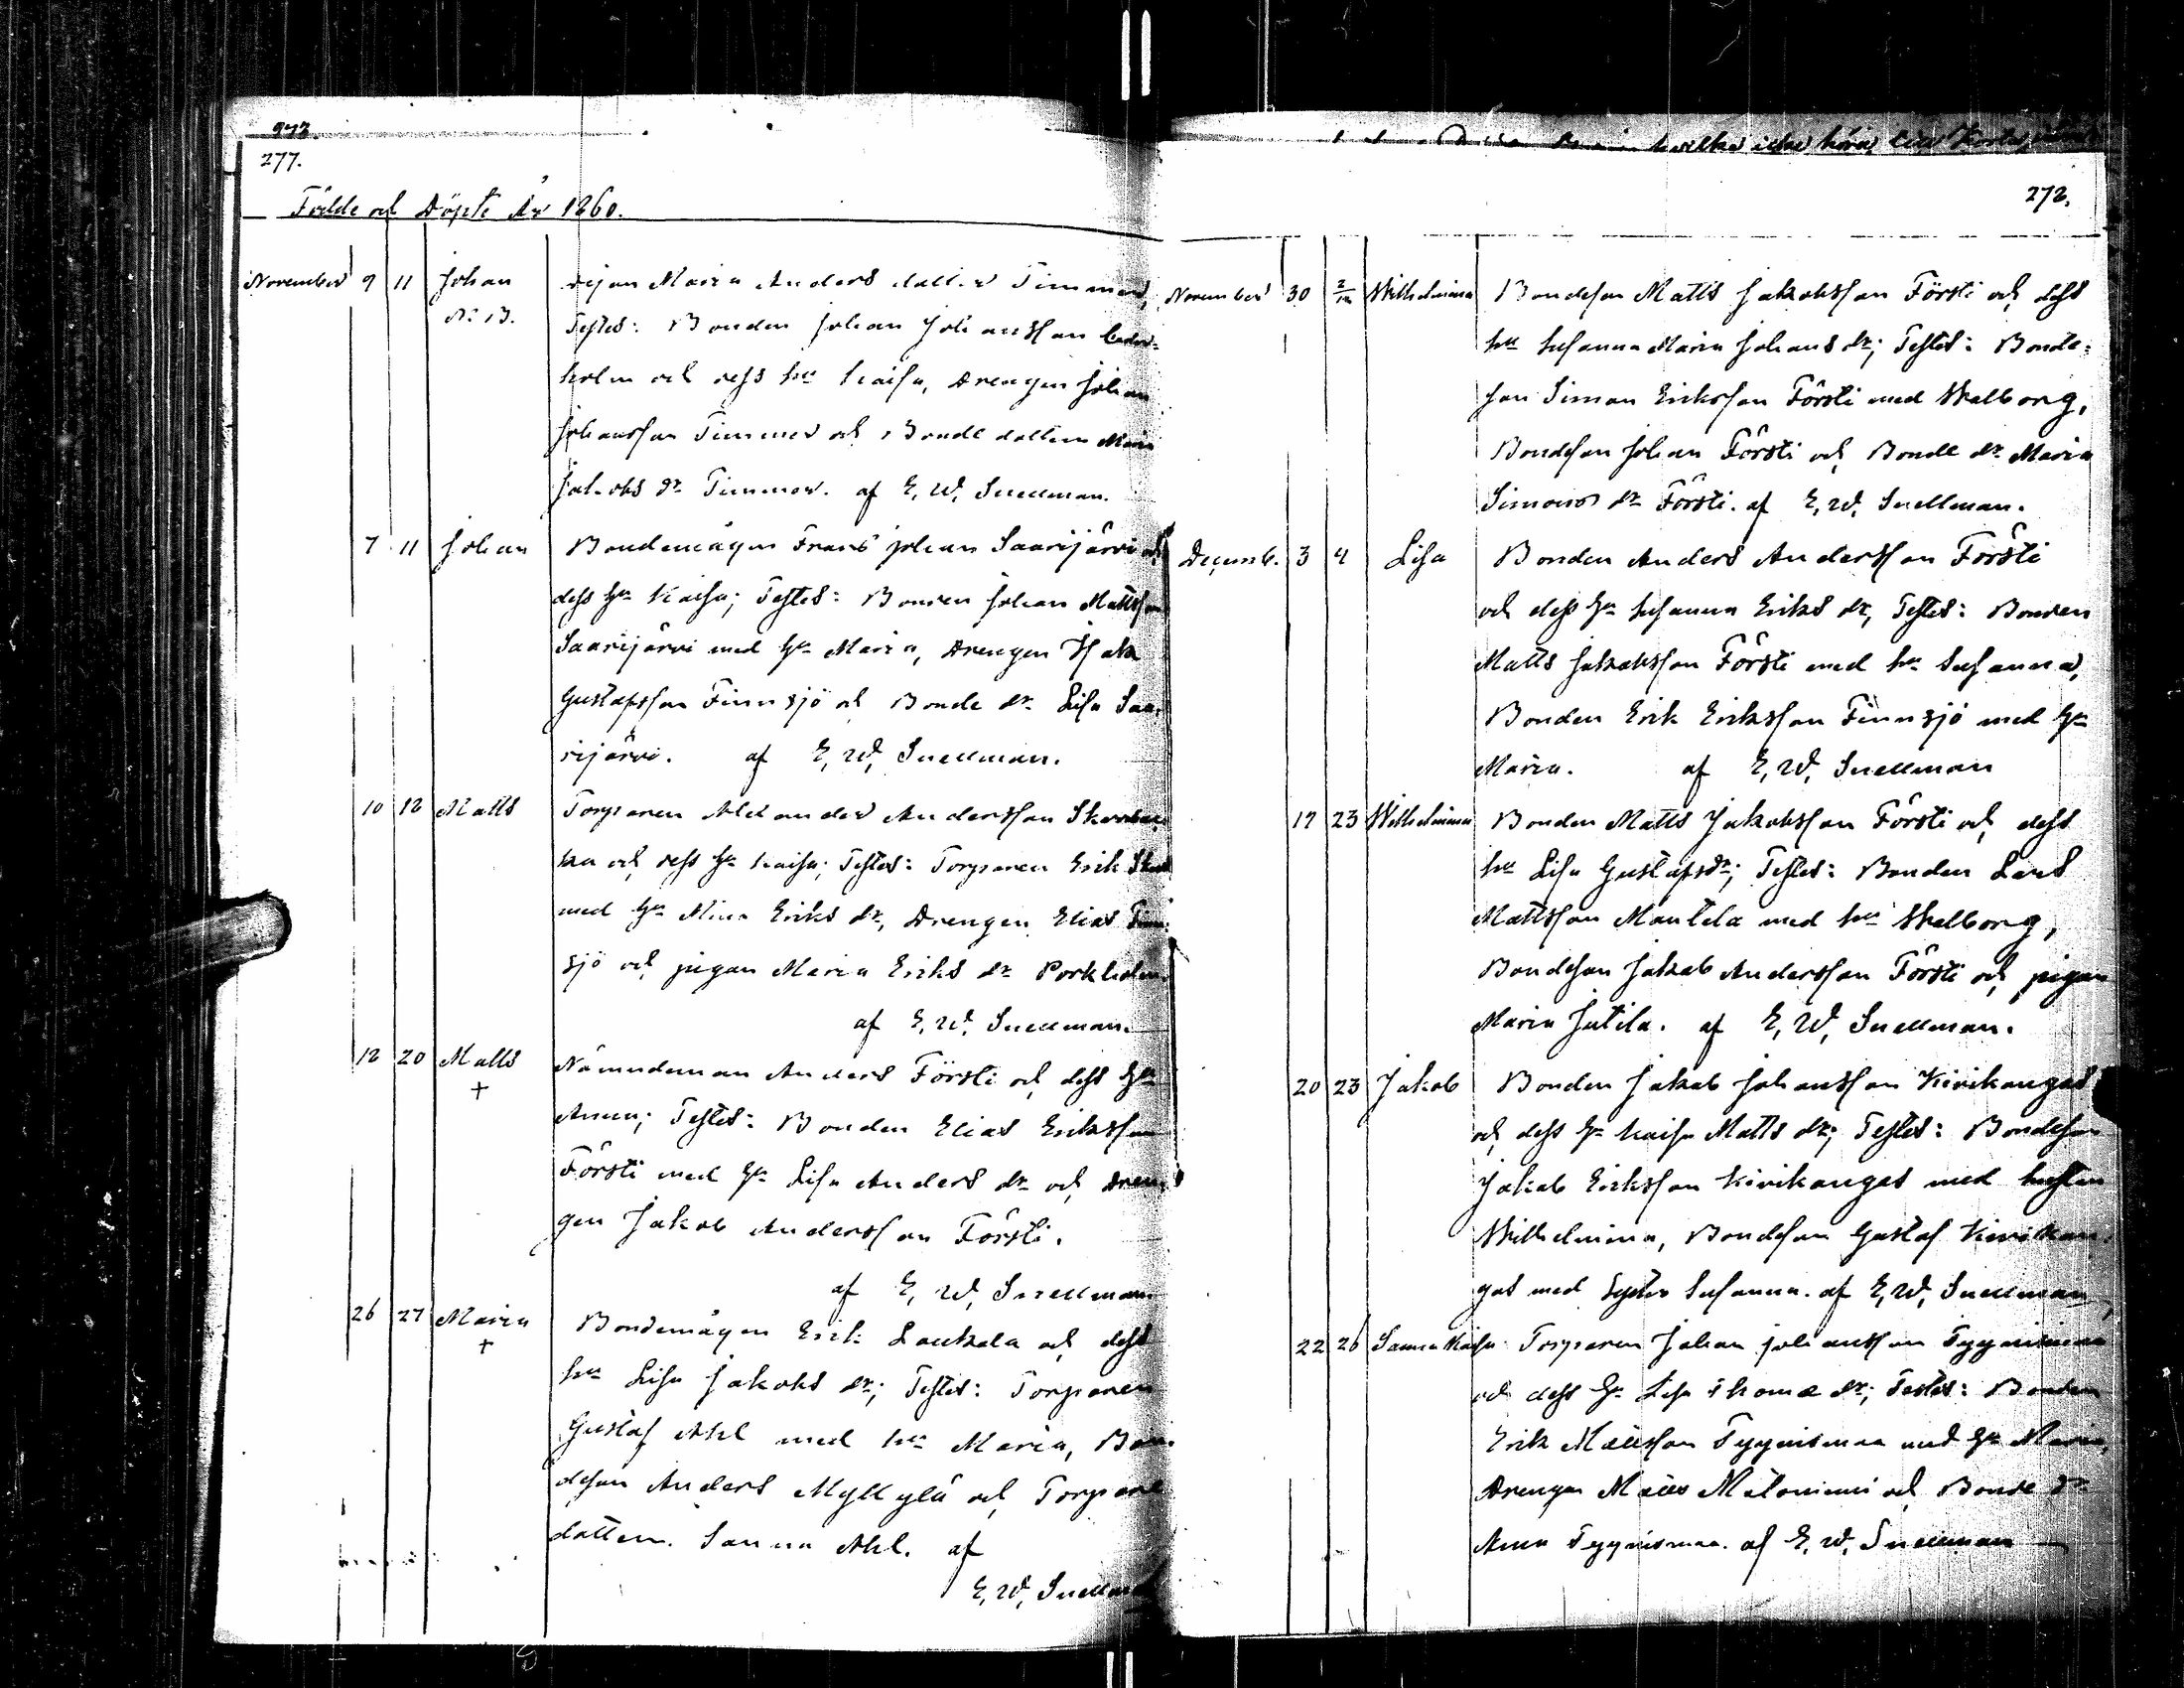 277.
Födde och Döpte År 1860.
November 9 11 Johan pigan Maria Anders dotter Timmer,
Testes: Bonden Johan Johansson Ceder-
holm och dess hu Kaisa, Drengen Johan
Johansson Timmer och Bonde dottern Maria
Jakobs dr Timmer. af E, W, Snellman.
7 11 Johan Bondemågen Frans Johan Saarijärvi och
dess hu Kaisa; Testes: Bonden Johan Mattsson
Saarijärvi med hu Maria, Drengen Isak
Gustafsson Finnsjö och Bonde dr Lisa Saa-
rijärvi. af E, W, Snellman.
10 12 Matts Torparen Alexander Andersson
ka och dess hu Kaisa; Testes: Torparen Erik
med hu Mina Eriks dr, Drengen Elias Finn-
sjö och pigan Maria Eriks dr Porkholm.
af E, W, Snellman.
12 20 Matts Nämndeman Anders Försti och dess hu
+
Anna; Testes: Bonden Elias Eriksson
Försti med hu Lisa Anders dr och Dren-
gen Jakob Andersson Försti.
af E, W, Snellman
26 27 Maria Bondemågen Erik Laukala och dess
+
hu Lisa Jakobs dr; Testes: Torparen
Gustaf Ahl med hu Maria, Bon-
deson Anders Myllylä och Torpare
dottern Sanna Ahl. af
E, W, Snellman
hvilka icke höra
272.
November 30 2/12 Wilhelmina Bondeson Matts Jakobsson Försti och dess
hu Susanna Maria Johans dr; Testes: Bonde-
son Simon Eriksson Försti med Walborg,
Bondeson Johan Försti och Bonde dr Maria
Simons dr Försti. af E, W, Snellman.
Decemb. 3 4 Lisa Bonden Anders Andersson Försti
och dess hu Susanna Eriks dr, Testes: Bonden
Matts Jakobsson Försti med hu Susanna,
Bonden Erik Eriksson Finnsjö med hu
Maria. af E, W, Snellman
17 23 Wilhelmina Bonden Matts Jakobsson Försti och dess
hu Lisa Gustafsdr; Testes: Bonden Lars
Mattsson Mantela med hu Walborg,
Bondeson Jakob Andersson Försti och pigan
Maria Jutila. af E, W, Snellman.
20 23 Jakob Bonden Jakob Johansson Kivikangas
och dess hu Kaisa Matts dr; Testes: Bondeson
Jakob Eriksson Kivikangas med hustru
Wilhelmina, Bondeson Gustaf Kivikan-
gas med Syster Susanna. af E, W, Snellman,
22 26 Sanna Kaisa Torparen Johan Johansson Tyynismaa
och dess hu Lisa Thomæ dr; Testes: Bonden
Erik Matsson Tyynismaa med hu Maria,
Drengen Matts Mätöniemi och Bonde dr
Anna Tyynismaa. af E, W, Snellman